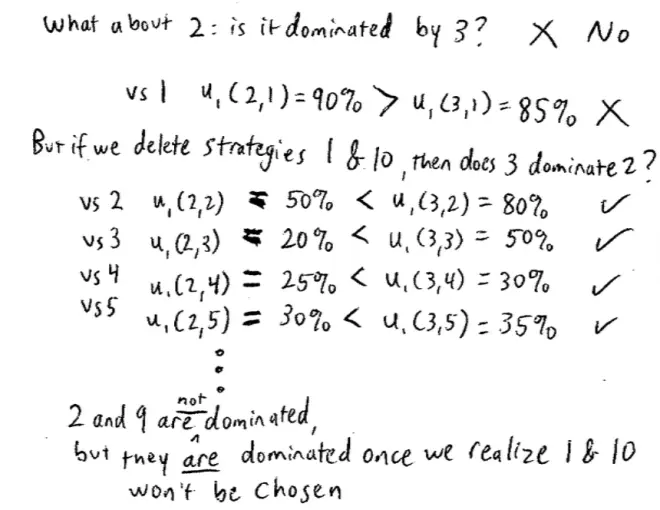 What about 2: is it dominated by 3? X No
vs 1 u₁(2,1)=90% > u₁(3,1)=85% X
But if we delete strategies 1 & 10, then does 3 dominate 2?
vs 2 u₁(2,2) = 50% < u₁(3,2) = 80% ✓
vs 3 u₁(2,3) = 20% < u₁(3,3) = 50% ✓
vs 4 u₁(2,4) = 25% < u₁(3,4) = 30% ✓
vs 5 u₁(2,5) = 30% < u₁(3,5) = 35% ✓
2 and 9 are not dominated,
but they are dominated once we realize 1 & 10
won't be chosen